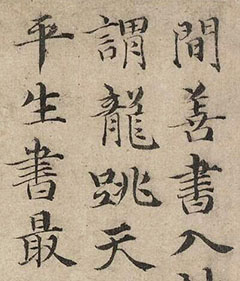 間善書入
謂龍跳天
平生書最